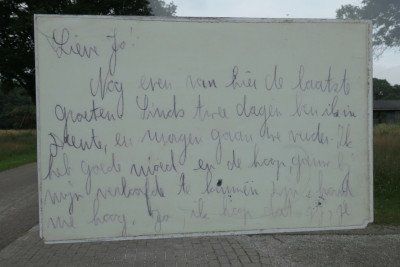 Lieve Jo!
Nog even van hier de laatste
groeten. Sinds twee dagen ben ik in
Drente, en morgen gaan we verder. Ik
heb goede moed en de hoop, gauw bij
mijn verloofde te kunnen zijn, houdt
me hoog. Jo, ik hoop dat jij je